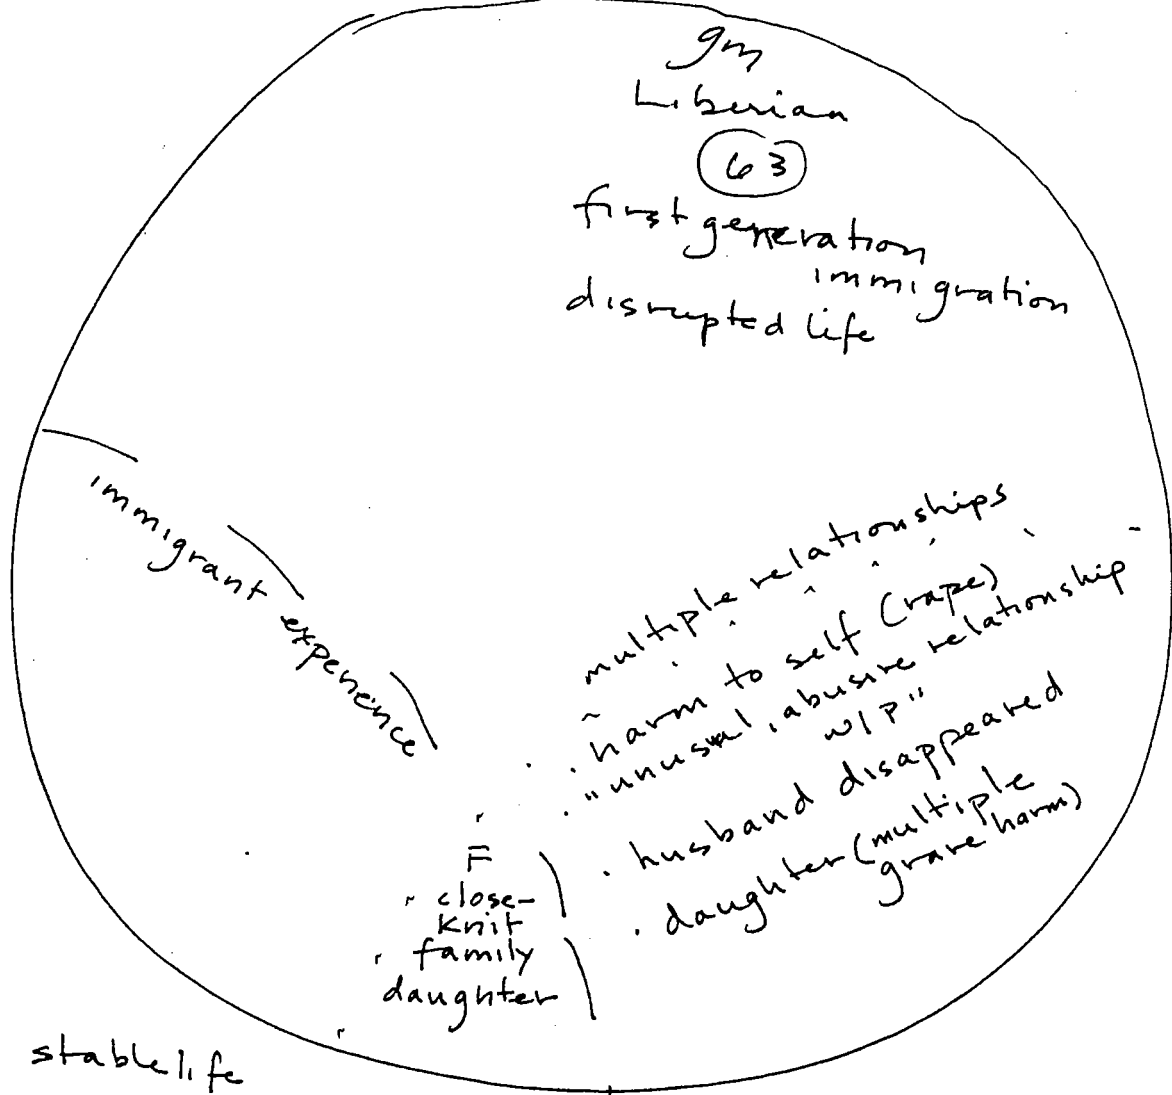 gm
Liberian
63
first generation
immigration
disrupted life
immigrant experience
multiple relationships
harm to self (rape)
"unusual, abusive relationship
w/P"
husband disappeared
daughter (multiple
grave harm)
F
close-
knit
family
daughter
stable life